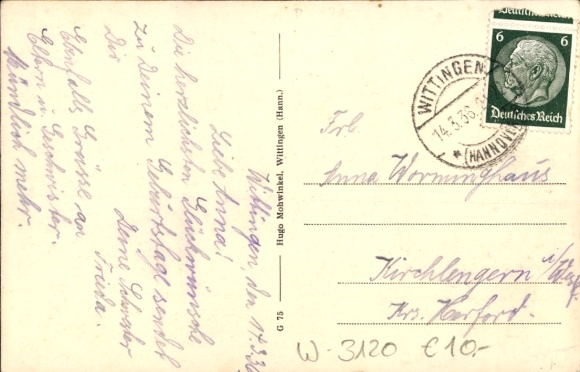 Wittingen, den 14.3.36
Liebe Anna!
Die herzlichsten Glückwünsche
zu Deinem Geburtstage sendet
Dir Deine Schwester
Frieda.
Ebenfalls Grüsse an
Eltern u. Geschwister.
Mündlich mehr.
Hugo Mohwinkel, Wittingen (Hann.)
G 75
Deutsches Reich
6 6
Deutsches Reich
WITTINGEN
14.3.36
(HANNOVER)
Frl.
Anna Worminghaus
Kirchlengern
Krs. Herford.
W-3120 €10.-